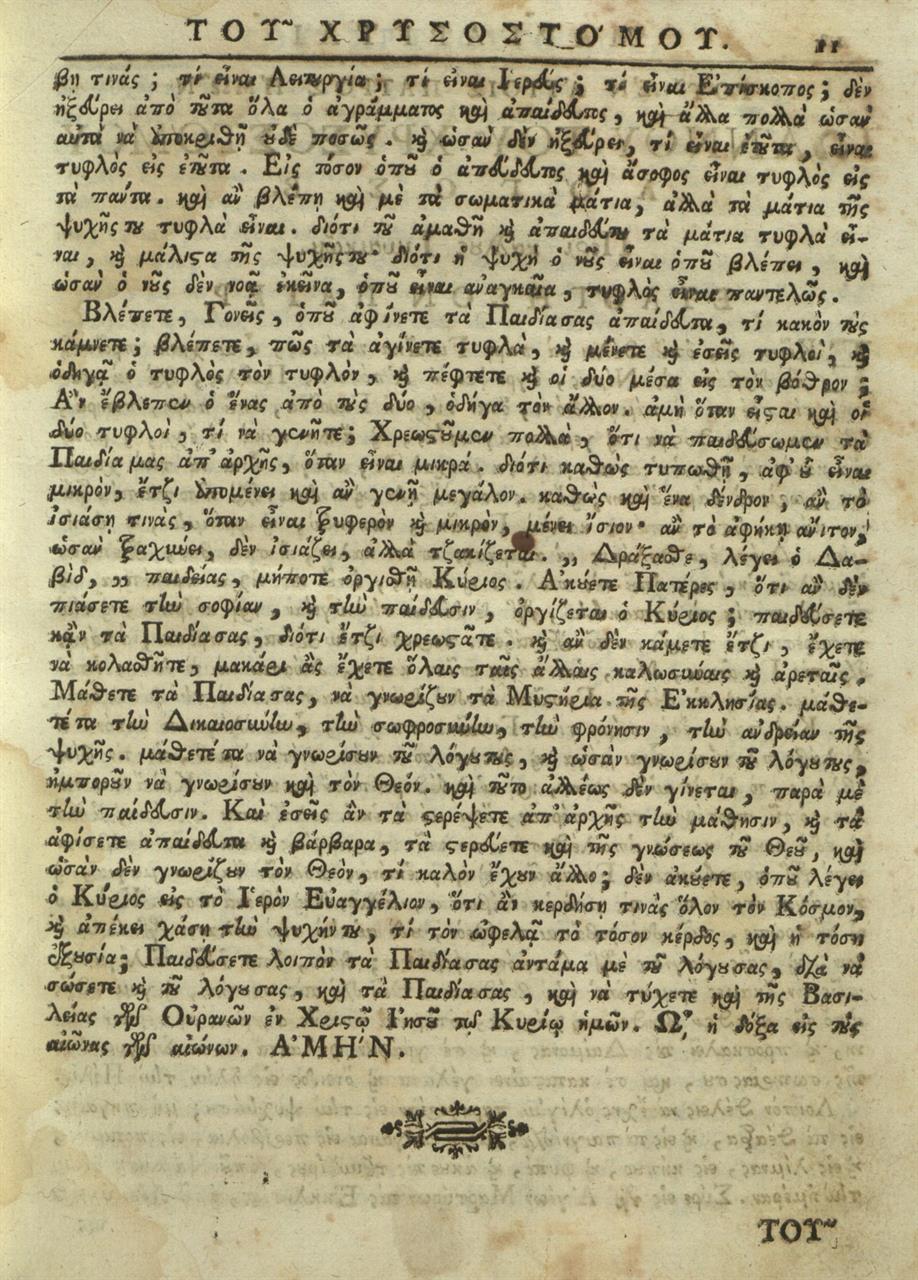 ΤΟΥ͂ ΧΡΥΣΟΣΤΟ´ΜΟΥ. 11
βη τινάς; τί εἶναι Λειτουργία; τί εἶναι Ιερεύς; τί εἶναι Επίσκοπος; δὲν
ἠξεύρει ἀπὸ τοῦτα ὅλα ὁ ἀγράμματος καὶ ἀπαίδευτος, καὶ ἄλλα πολλὰ ὡσαν
αὐτὰ νὰ ὑποκριθῇ οὐδὲ ποσῶς. καὶ ὡσαν δὲν ἠξεύρει, τί εἶναι ἐτοῦτα, εἶναι
τυφλὸς εἰς ἐτοῦτα. Εἰς τόσον ὁποῦ ὁ ἀπαίδευτος καὶ ἄσοφος εἶναι τυφλὸς εἰς
τὰ πάντα. καὶ ἂν βλέπῃ καὶ μὲ τὰ σωματικὰ μάτια, ἀλλὰ τὰ μάτια τῆς
ψυχῆς του τυφλὰ εἶναι. διότι τοῦ ἀμαθῆ καὶ ἀπαιδεύτου τὰ μάτια τυφλὰ εἶ-
ναι, καὶ μάλιστα τῆς ψυχῆς του· διότι ἡ ψυχὴ ὁ νοῦς εἶναι ὁποῦ βλέπει, καὶ
ὡσὰν ὁ νοῦς δὲν νοᾷ ἐκεῖνα, ὁποῦ εἶναι ἀναγκαῖα, τυφλὸς εἶναι παντελῶς.
Βλέπετε, Γονεῖς, ὁποῦ ἀφίνετε τὰ Παιδίασας ἀπαίδευτα, τί κακὸν τοὺς
κάμνετε; βλέπετε, πῶς τὰ ἀγίνετε τυφλὰ, καὶ μένετε καὶ ἐσεῖς τυφλοὶ, καὶ
ὁδηγᾷ ὁ τυφλὸς τὸν τυφλὸν, καὶ πέφτετε καὶ οἱ δύο μέσα εἰς τὸν βόθρον;
Α᾿ν ἔβλεπεν ὁ ἕνας ἀπὸ τοὺς δύο, ὁδήγα τὸν ἄλλον. ἀμὴ ὅταν εἶσται καὶ οἱ
δύο τυφλοὶ, τί νὰ γενῆτε; Χρεωστοῦμεν πολλὰ, ὅτι νὰ παιδεύσωμεν τὰ
Παιδία μας ἀπ' ἀρχῆς, ὅταν εἶναι μικρά. διότι καθὼς τυπωθῇ, ἀφ' οὗ εἶναι
μικρὸν, ἔτζι ὑπομένει καὶ ἂν γενῇ μεγάλον. καθὼς καὶ ἕνα δένδρον, ἂν τὸ
ἰσιάσῃ τινὰς, ὅταν εἶναι τρυφερὸν καὶ μικρὸν, μένει ἴσιον· ἂν τὸ ἀφήκῃ ἄνιτον,
ὡσαν τραχύνει, δὲν ἰσιάζει, ἀλλὰ τζακίζεται. ,, Δράξασθε, λέγει ὁ Δα-
βὶδ, ,, παιδείας, μήποτε ὀργισθῇ Κύριος. Ακούετε Πατέρες, ὅτι ἂν δὲν
πιάσετε τὴν σοφίαν, καὶ τὴν παίδευσιν, ὀργίζεται ὁ Κύριος; παιδεύσετε
κἂν τὰ Παιδίασας, διότι ἔτζι χρεωστᾶτε. καὶ ἂν δὲν κάμετε ἔτζι, ἔχετε
νὰ κολασθῆτε, μακάρι ἂς ἔχετε ὅλαις ταῖς ἄλλαις καλωσύναις καὶ ἀρεταῖς.
Μάθετε τὰ Παιδίασας, νὰ γνωρίζουν τὰ Μυστήρια τῆς Εκκλησίας. μάθε-
τέτα τὴν Δικαιοσύνην, τὴν σωφροσύνην, τὴν φρόνησιν, τὴν ἀνδρείαν τῆς
ψυχῆς. μάθετέτα νὰ γνωρίσουν τοῦ λόγουτους, καὶ ὡσὰν γνωρίσουν τοῦ λόγουτους,
ἠμποροῦν νὰ γνωρίσουν καὶ τὸν Θεόν. καὶ τοῦτο ἀλλέως δὲν γίνεται, παρὰ μὲ
τὴν παίδευσιν. Καὶ ἐσεῖς ἂν τὰ στερέψετε ἀπ' ἀρχῆς τὴν μάθησιν, καὶ τὰ
ἀφίσετε ἀπαίδευτα καὶ βάρβαρα, τὰ στερεύετε καὶ τῆς γνώσεως τοῦ Θεοῦ, καὶ
ὡσὰν δὲν γνωρίζουν τὸν Θεὸν, τί καλὸν ἔχουν ἄλλο; δὲν ἀκούετε, ὁποῦ λέγει
ὁ Κύριος εἰς τὸ Ι῾ερὸν Εὐαγγέλιον, ὅτι ἂν κερδήσῃ τινὰς ὅλον τὸν Κόσμον,
καὶ ἀπέκει χάσῃ τὴν ψυχήντου, τί τὸν ὠφελᾷ τὸ τόσον κέρδος, καὶ ἡ τόση
ἐξουσία; Παιδεύσετε λοιπὸν τὰ Παιδίασας ἀντάμα μὲ τοῦ λόγουσας, διὰ νὰ
σώσετε καὶ τοῦ λόγουσας, καὶ τὰ Παιδίασας, καὶ νὰ τύχετε καὶ τῆς Βασι-
λείας τῶν Οὐρανῶν ἐν Χριστῷ Ι᾿ησοῦ τῷ Κυρίῳ ἡμῶν. ῼ῟ ἡ δόξα εἰς τοὺς
αἰῶνας τῶν αἰώνων. Α᾿ΜΗ´Ν.
ΤΟΥ͂